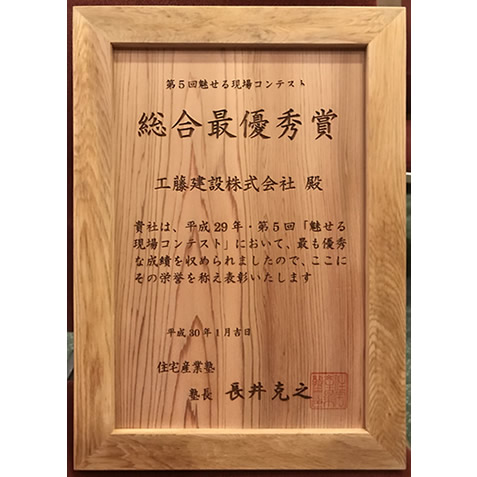 第5回魅せる現場コンテスト
総合最優秀賞
工藤建設株式会社 殿
貴社は、平成29年・第5回「魅せる
現場コンテスト」において、最も優秀
な成績を収められましたので、ここに
その栄誉を称え表彰いたします
平成30年1月吉日
住宅産業塾
塾長 長井克之